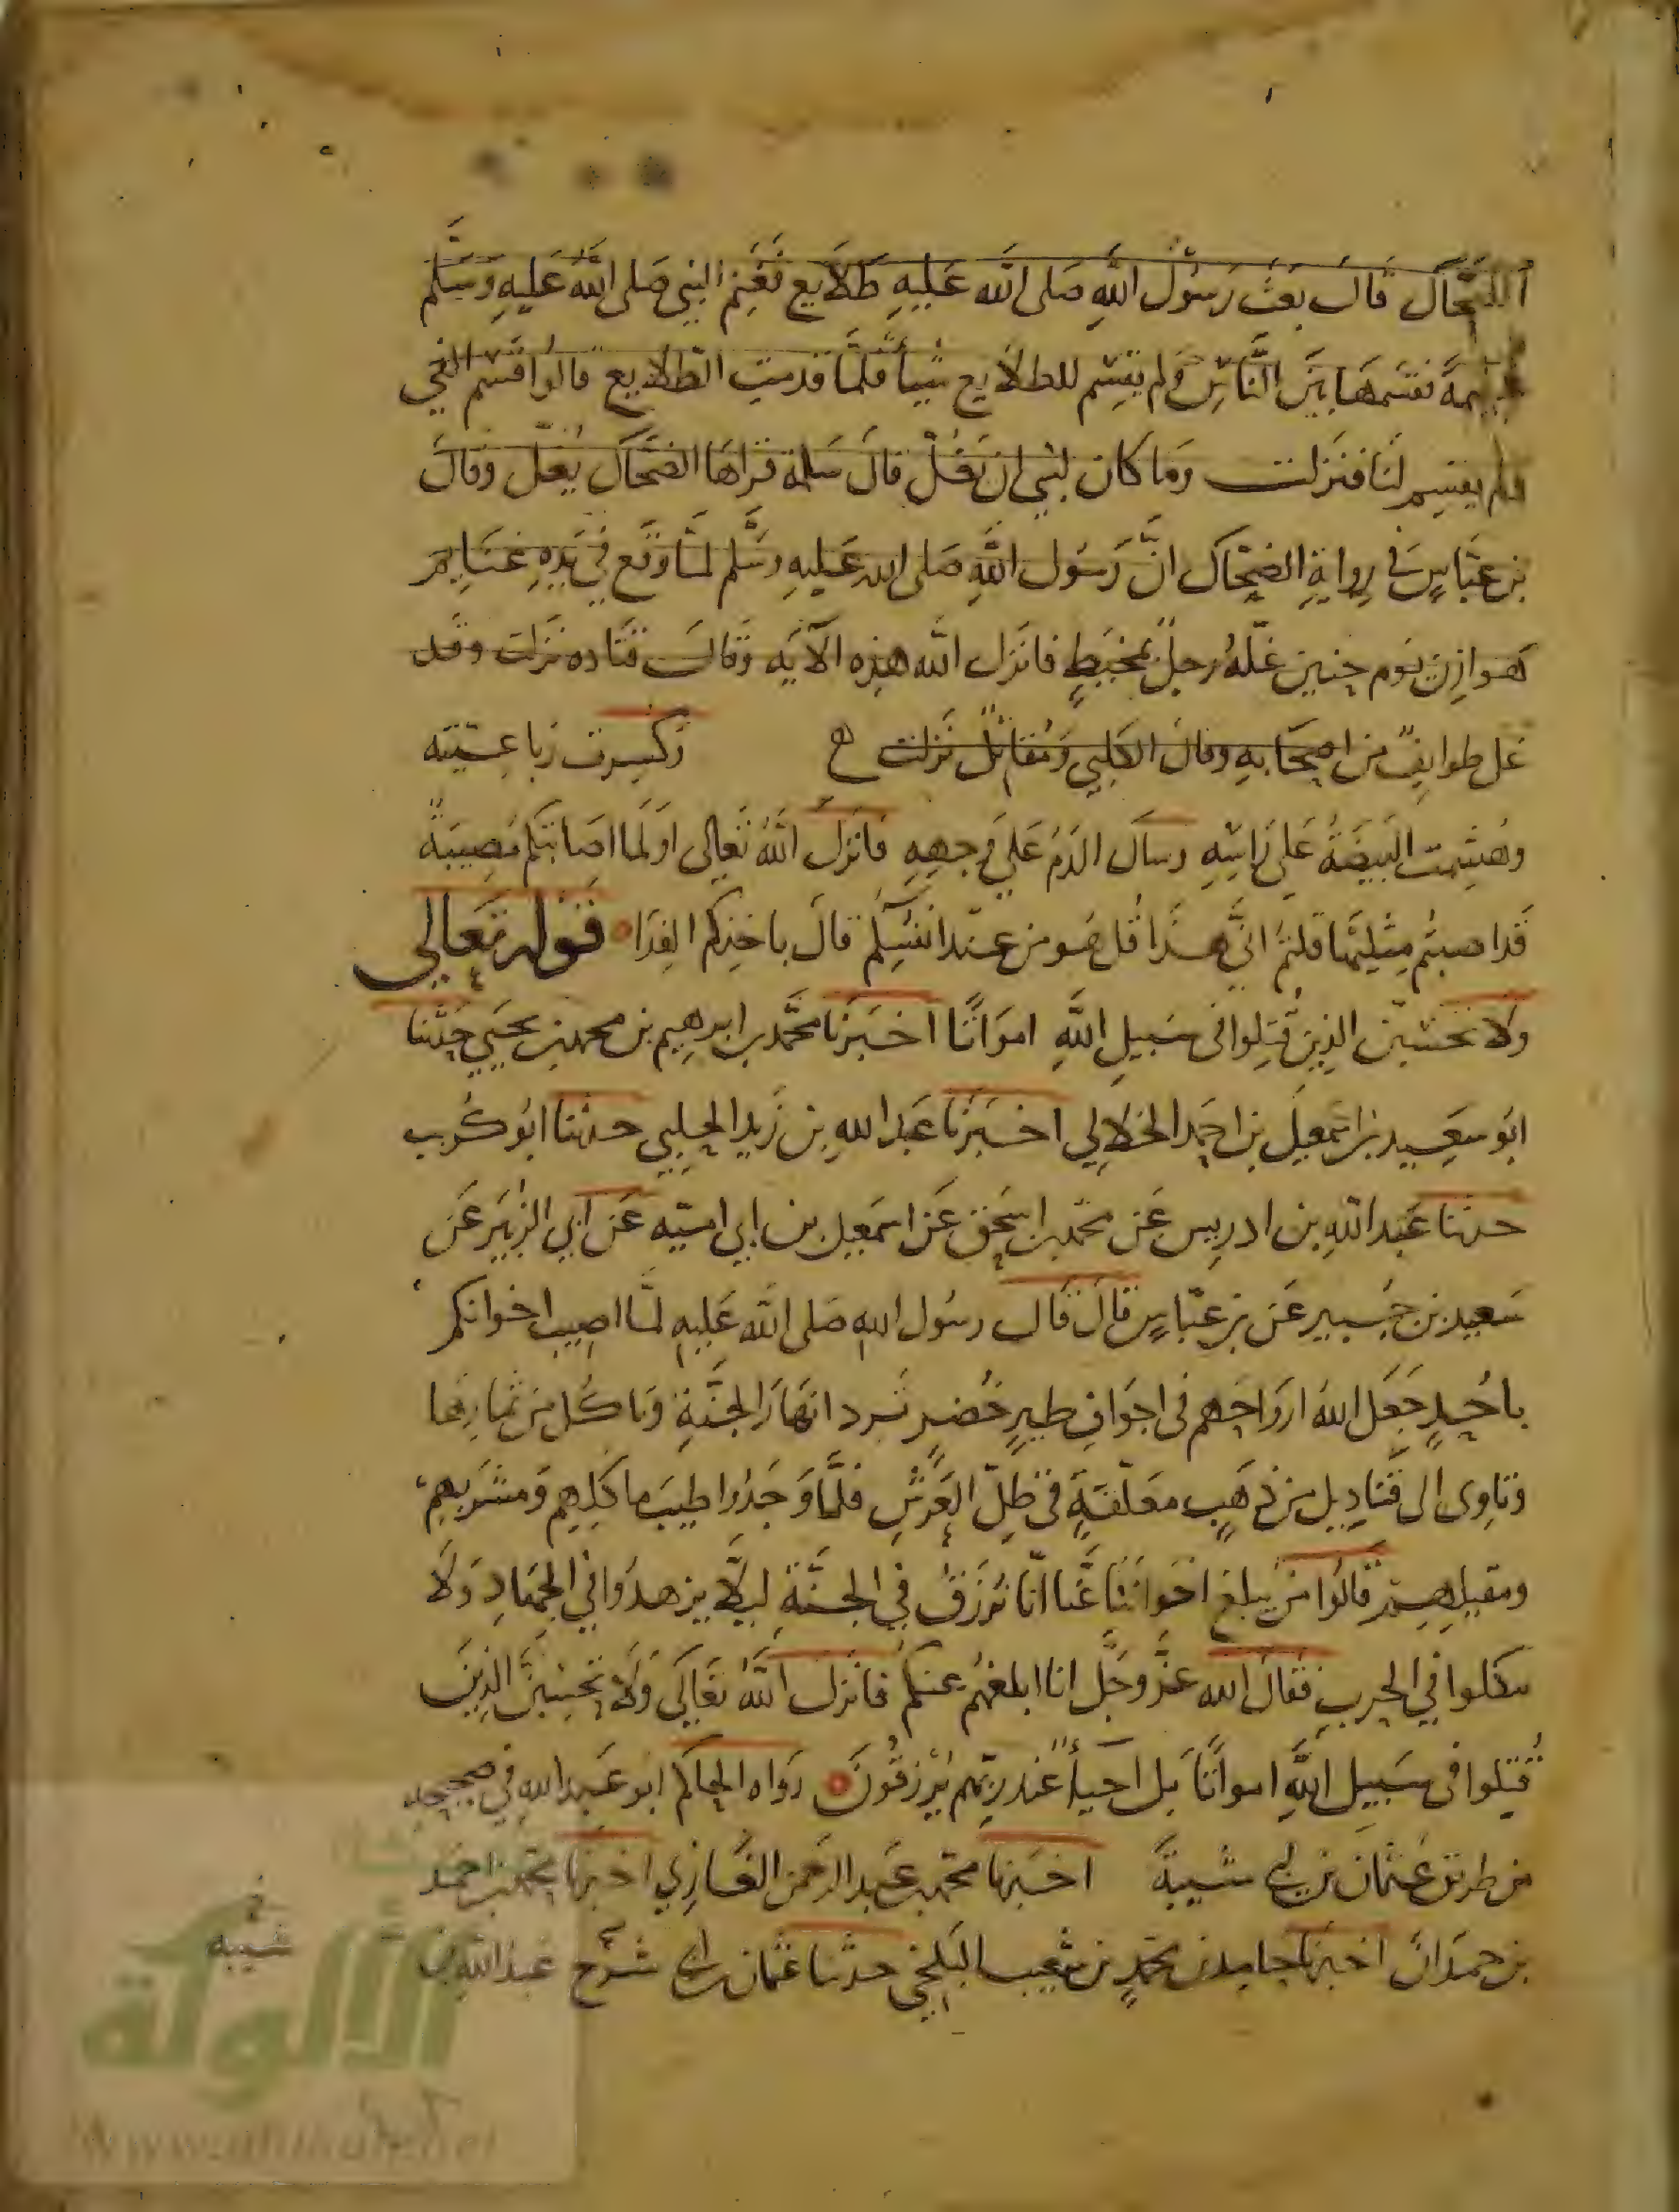 الضحاك قال بعث رسول الله صلى الله عليه طلايع فغنم النبي صلى الله عليه وسلم
غنيمة فقسمها بين الناس ولم يقسم للطلايع شيأ فلما قدمت الطلايع قالوا قسم الفي
ولم يقسم لنا فنزلت وما كان لنبي ان يغل قال سلمة قراها الضحاك يغل وقال
بن عباس في رواية الضحاك ان رسول الله صلى الله عليه وسلم لما وقع في يده غنايم
هوازن يوم حنين غله رجل بمخيط فانزل الله هذه الآية وقال قتاده نزلت وقد
غل طوايف من اصحابه وقال الكلبي ومقاتل نزلت ح وكسرت رباعيته
وهشمت البيضة على راسه وسال الدم على وجهه فانزل الله تعالى اولما اصابتكم مصيبة
قد اصبتم مثليها قلتم انى هذا قل هو من عند انفسكم قال باخذكم الفدا قوله تعالى
ولا تحسبن الذين قتلوا في سبيل الله امواتا اخبرنا محمد بن ابرهيم بن محمد بن يحيي حدثنا
ابو سعيد بن اسمعيل بن احمد الخلالي اخبرنا عبد الله بن زيد البجلي حدثنا ابو كريب
حدثنا عبد الله بن ادريس عن محمد بن اسحق عن اسمعيل بن ابي امية عن ابي الزبير عن
سعيد بن جبير عن بن عباس قال قال رسول الله صلى الله عليه لما اصيب اخوانكم
باحد جعل الله ارواحهم في اجواف طير خضر ترد انهار الجنة وتاكل من ثمارها
وتاوى الى قناديل من ذهب معلقة في ظل العرش فلما وجدوا طيب ماكلهم ومشربهم
ومقيلهم قالوا من يبلغ اخواننا عنا انا نرزق في الجنة ليلا يزهدوا في الجهاد ولا
ينكلوا في الحرب فقال الله عز وجل انا ابلغهم عنكم فانزل الله تعالى ولا تحسبن الذين
قتلوا في سبيل الله امواتا بل احياء عند ربهم يرزقون رواه الحاكم ابو عبد الله في صحيحه
من طريق عثمان بن ابي شيبة اخبرنا محمد بن عبد الرحمن الغازي اخبرنا محمد بن احمد
بن حمدان اخبرنا حامد بن محمد بن شعيب البلخي حدثنا عثمان بن ابي عبد الله بن
شيبه
الألوكة
www.alukah.net